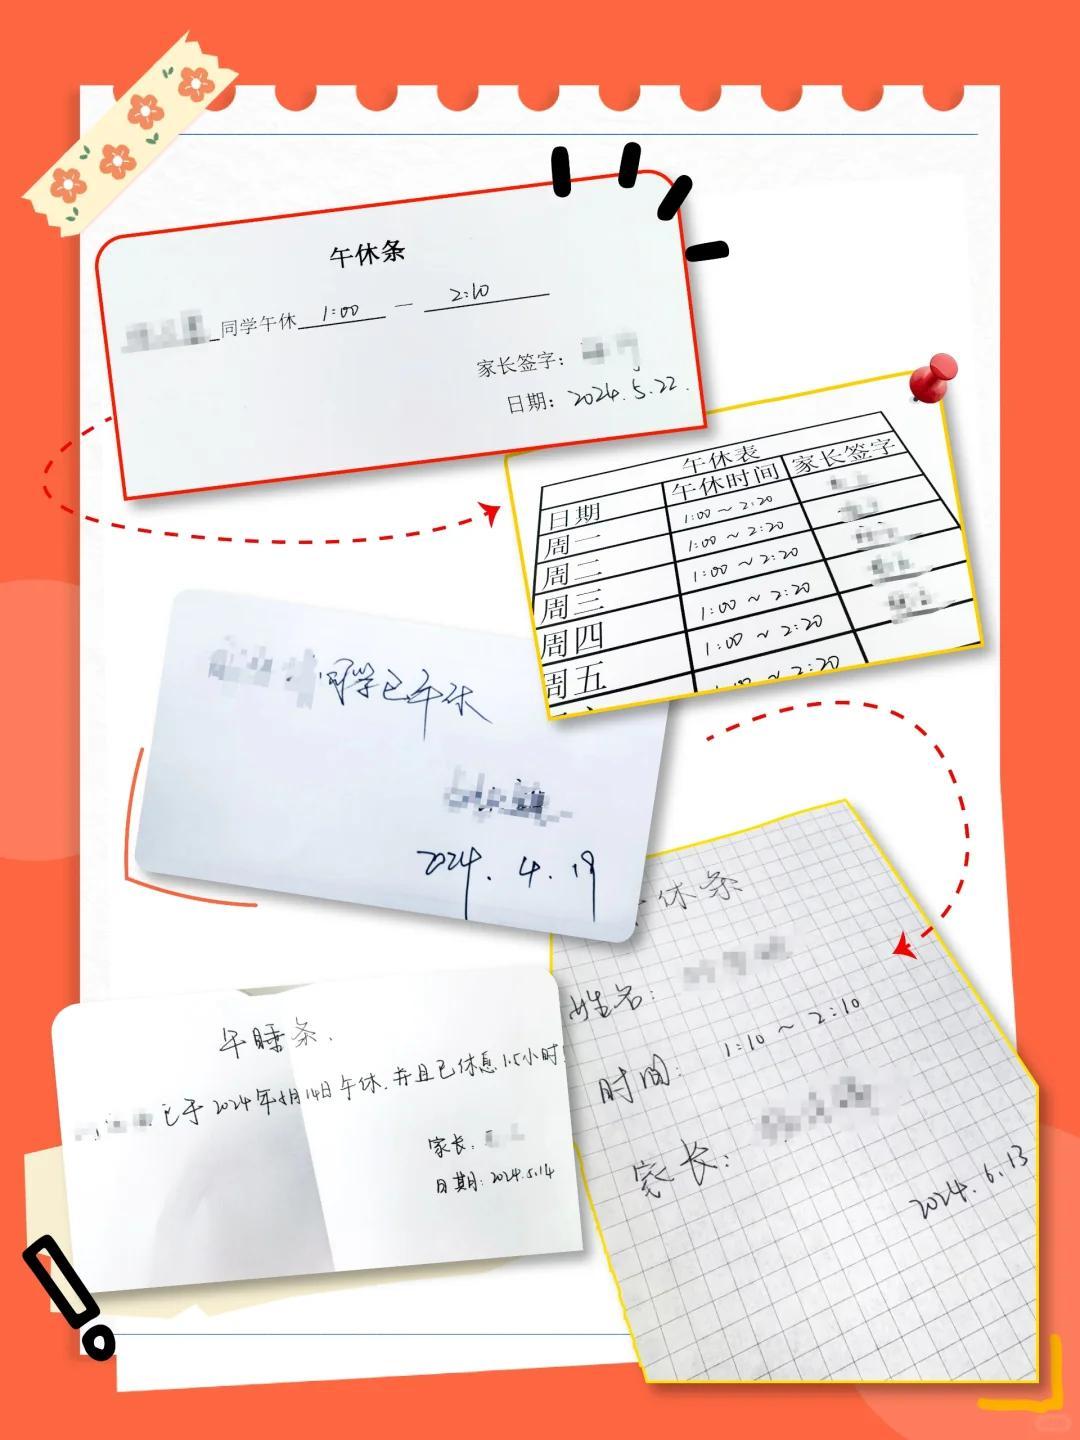 午休条
同学午休 1:00 — 2:10
家长签字:
日期: 2024.5.22.
午休表
日期 午休时间 家长签字
周一 1:00 ~ 2:20
周二 1:00 ~ 2:20
周三 1:00 ~ 2:20
周四 1:00 ~ 2:20
周五 1:00 ~ 2:20
同学已午休
2024.4.19
休条
姓名:
时间: 1:10 ~ 2:10
家长:
2024.6.13
午睡条.
已于2024年5月14日午休,并且已休息1.5小时
家长:
日期: 2024.5.14